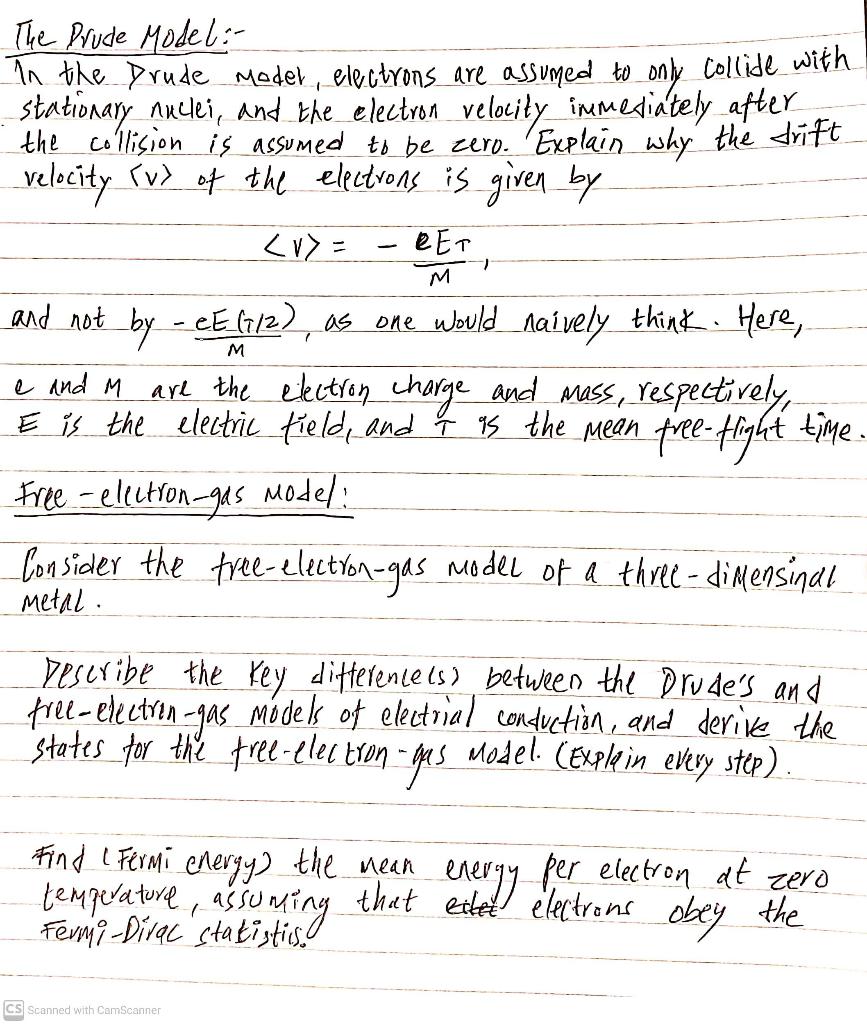 The Drude Model:-
In the Drude Model, electrons are assumed to only collide with
stationary nuclei, and the electron velocity immediately after
the collision is assumed to be zero. Explain why the drift
velocity <v> of the electrons is given by
<v> = - eEτ/M ,
and not by - eE(τ/2)/M , as one would naively think. Here,
e and M are the electron charge and mass, respectively,
E is the electric field, and τ is the mean free-flight time.
Free-electron-gas model:
Consider the free-electron-gas model of a three-dimensinal
metal.
Describe the key difference(s) between the Drude's and
free-electron-gas models of electrial conduction, and derive the
states for the free-electron-gas model. (Explain every step).
Find (Fermi energy) the mean energy per electron at zero
temperature, assuming that electrons obey the
Fermi-Dirac statistics.
CS Scanned with CamScanner